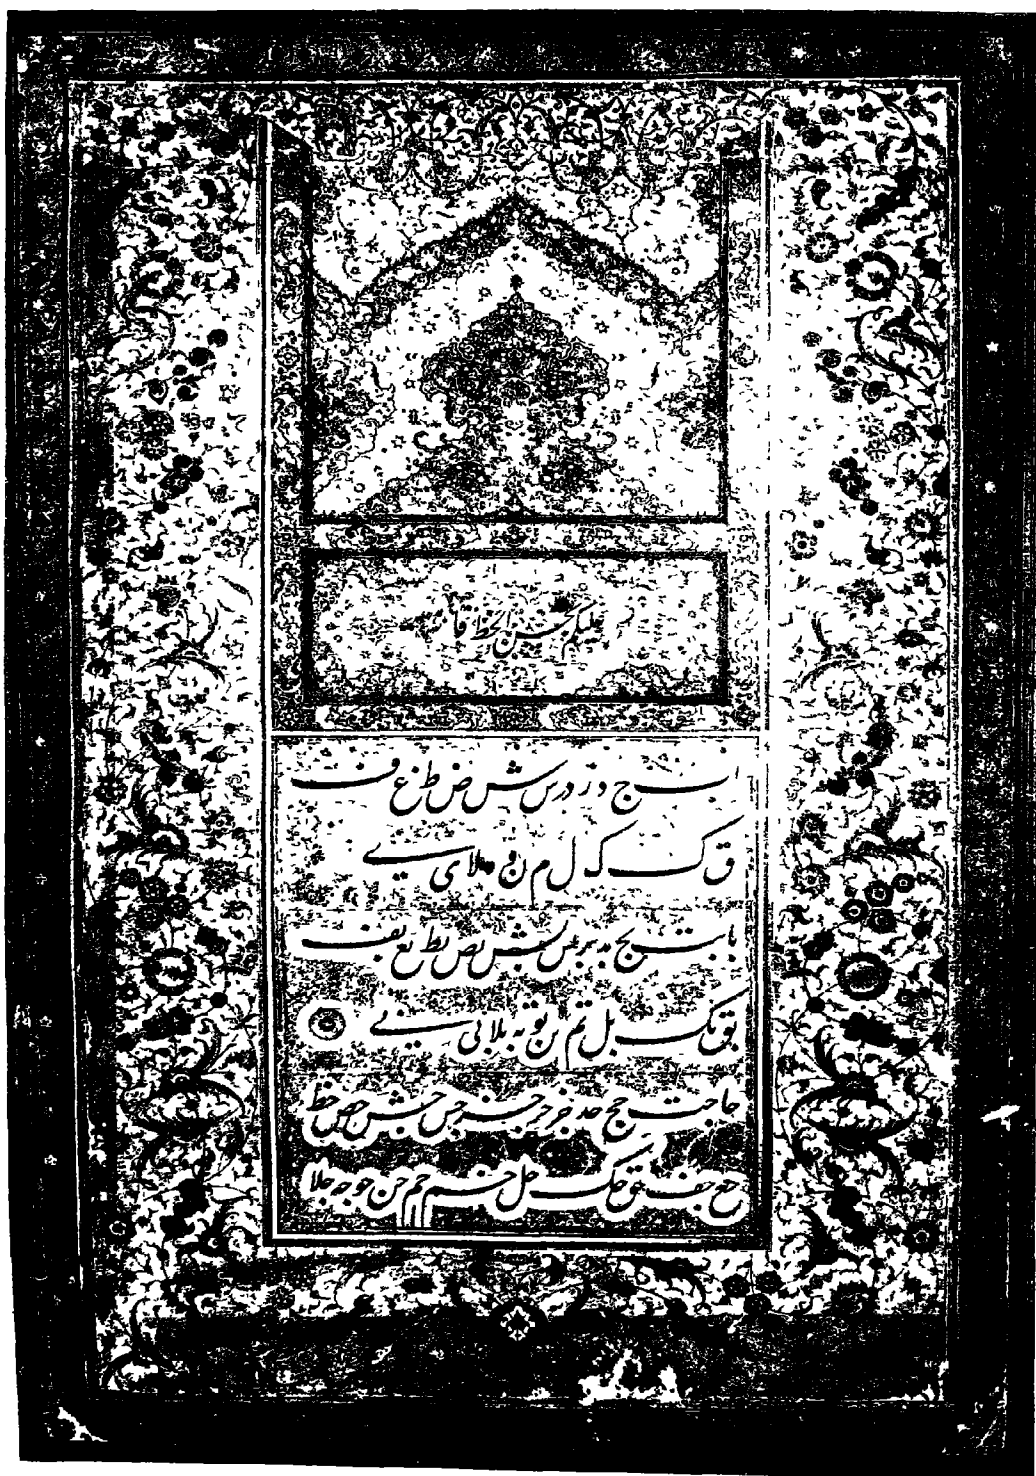 عليكم بحسن الخط فانه من
ا ب ج د ر درس س ش ص ط ع ف
ق ک ک ل م ن و ه لا ی ے
با بت بج بد بر بس بش بص بط بع بف
بق بک بل بم بن بو به بلا بی بے
حا حت حج حد حر حس حش حص حط
حع حف حق حک حل حم حم حن حو حه حلا